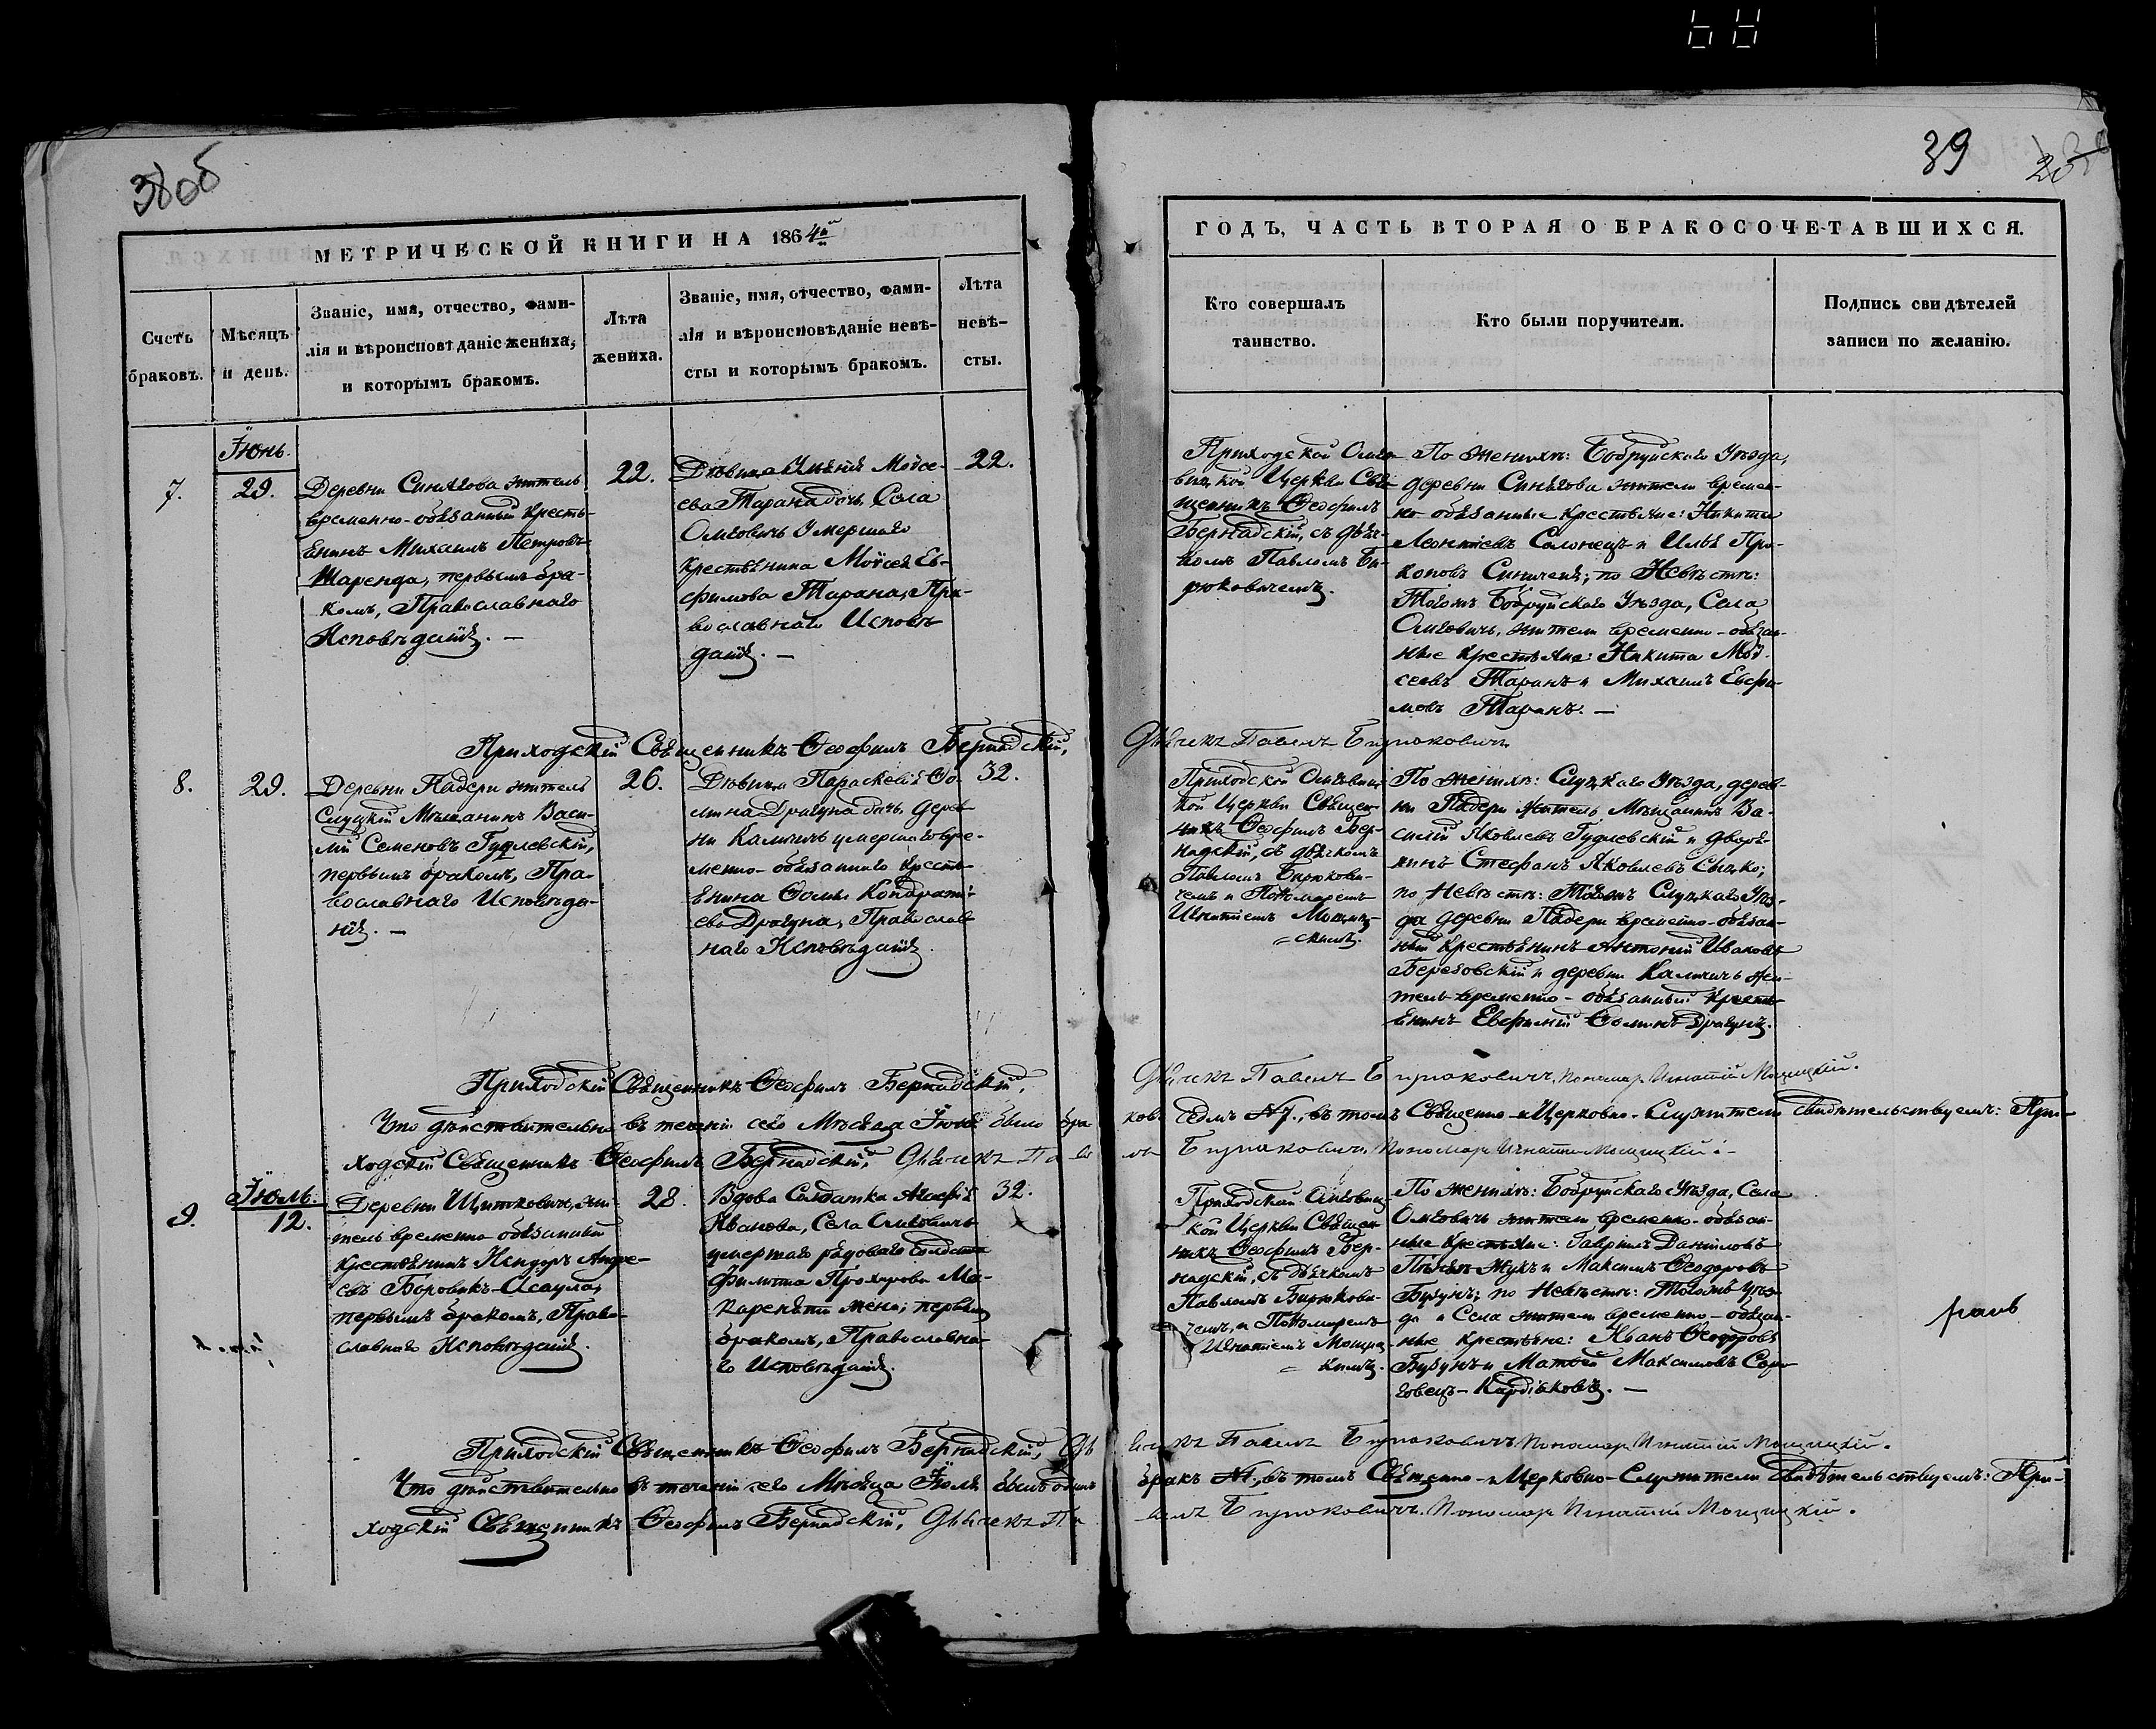 38об
39
МЕТРИЧЕСКОЙ КНИГИ НА 1864й
ГОДЪ, ЧАСТЬ ВТОРАЯ О БРАКОСОЧЕТАВШИХСЯ.
Счетъ
браковъ.
Мѣсяцъ
и день.
Званіе, имя, отчество, фами-
лія и вѣроисповѣданіе жениха,
и которымъ бракомъ.
Лѣта
жениха.
Званіе, имя, отчество, фами-
лія и вѣроисповѣданіе невѣ-
сты и которымъ бракомъ.
Лѣта
невѣ-
сты.
Кто совершалъ
таинство.
Кто были поручители.
Подпись свидѣтелей
записи по желанію.
7.
Іюнь.
29.
Деревни Синягова житель
временно-обязанный кресть-
янинъ Михаилъ Петровъ
Шаренда, первымъ бра-
комъ, Православнаго
Исповѣданія. —
22.
Дѣвица Моисе-
ева Тарана дочь, Села
Омговичъ умершаго
крестьянина Моисея Ев-
фимова Тарана, Пра-
вославнаго Исповѣ
данія. —
22.
Приходской Омго-
вицкой Церкви Свя-
щенникъ Ѳеофилъ
Бернадскій, съ дьяч-
комъ Павломъ Би-
рюковичемъ.
По женихѣ: Бобруйскаго Уѣзда,
деревни Синягова жители времен-
но обязанные крестьяне: Никита
Леонтіевъ Солонецъ и Илья Про-
коповъ ; по Невѣстѣ:
Тогожъ Бобруйскаго Уѣзда, Села
Омговичъ, жители временно-обязан-
ные крестьяне: Никита Мои-
сеевъ Таранъ и Михаилъ Евфи-
мовъ Таранъ. —
Приходскій Священникъ Ѳеофилъ Бернадскій, Дьячекъ Павелъ Бирюковичъ
8.
29.
Деревни Падери житель
Слуцкій Мѣщанинъ Васи-
лій Семеновъ Гудлевскій,
первымъ бракомъ, Пра-
вославнаго Исповѣда-
нія. —
26.
Дѣвица Параскевія Ѳо-
мина Драгуна дочь, дерев
ни Калничъ умершаго вре-
менно-обязаннаго кресть
янина Ѳомы Кондрать-
ева Драгуна, Православ
наго Исповѣданія.
32.
Приходской Омговиц
кой Церкви Священ-
никъ Ѳеофилъ Бер-
надскій, съ дьячкомъ
Павломъ Бирюкови-
чемъ и Пономаремъ
Игнатіемъ Мощиц-
=кимъ.
По женихѣ: Слуцкаго Уѣзда, дерев-
ни Падери житель Мѣщанинъ Ва-
силій Яковлевъ Гудлевскій и дворя-
нинъ Стефанъ Яковлевъ ;
по Невѣстѣ: Тогожъ Слуцкаго Уѣз-
да деревни Падери временно-обязан-
ный крестьянинъ Антоній Ивановъ
Березовскій и деревни Калничъ жи-
тель временно-обязанный кресть
янинъ Евфимій Ѳоминъ Драгунъ.
Приходскій Священникъ Ѳеофилъ Бернадскій, Дьячекъ Павелъ Бирюковичъ, Пономарь Игнатій Мощицкій.
Что дѣйствительно въ теченіи сего Мѣсяца Іюня было бра ковъ седмъ №7., въ томъ Священно-и Церковно-Служители свидѣтельствуемъ: При-
ходскій Священникъ Ѳеофилъ Бернадскій, Дьячекъ Паве лъ Бирюковичъ, Пономарь Игнатій Мощицкій. —
9.
Іюль.
12.
Деревни Щитковичъ, жи-
тель временно обязанный
крестьянинъ Исидоръ Андре-
евъ Боровикъ-Асаула,
первымъ бракомъ, Право-
славнаго Исповѣданія.
28.
Вдова Солдатка Агафія
Иванова, Села Омговичъ
умершаго рядоваго солдата
Филиппа Прохорова Ма-
каревича жена, первымъ
бракомъ, Православна-
го Исповѣданія.
32.
Приходской Омговиц-
кой Церкви Священ-
никъ Ѳеофилъ Бер-
надскій, съ дьячкомъ
Павломъ Бирюкови-
чемъ, и Пономаремъ
Игнатіемъ Мощиц
=кимъ.
По женихѣ: Бобруйскаго Уѣзда, Села
Омговичъ жители временно-обязан-
ные крестьяне: Гавріилъ Даниловъ
Жукъ и Максимъ Ѳеодоровъ
Бузунъ; по Невѣстѣ: Тогожъ Уѣз-
да и Села жители временно-обязан-
ные крестьяне: Иванъ Ѳеодоровъ
Бузунъ и Матвей Максимовъ
. —
Приходскій Священникъ Ѳеофилъ Бернадскій, Дь ячекъ Павелъ Бирюковичъ, Пономарь Игнатій Мощицкій.
Что дѣйствительно въ теченіи сего Мѣсяца Іюля былъ одинъ бракъ №1, въ томъ Священно-и Церковно-Служители Свидѣтельствуемъ: При-
ходскій Священникъ Ѳеофилъ Бернадскій, Дьячекъ Па велъ Бирюковичъ. Пономарь Игнатій Мощицкій.